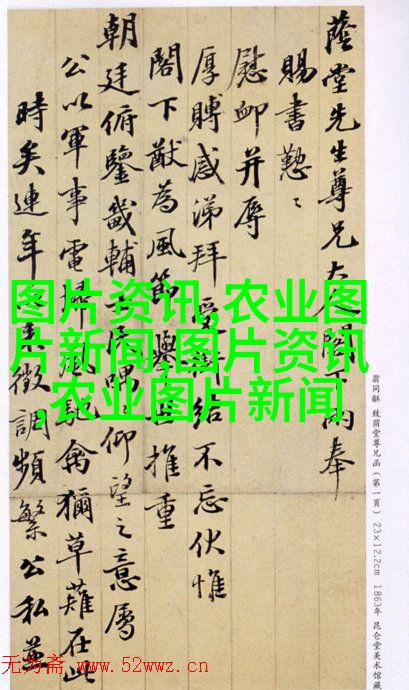 蔭堂先生尊兄大人閣下兩奉
賜書懃〻
慰卹并辱
厚賻感涕拜受銜結不忘伏惟
閣下猷為風節輿推重
朝廷俯鑒畿輔喁〻仰望之意屬
公以軍事電掃風馳禽獮草薙在此
時矣連年來徵調頻繁公私兼
图片资讯-农业图
片新闻-图片资讯
,农业图片新闻
翁同龢 致荫堂尊兄函（第一页） 23×12.2cm 1863年 昆仑堂美术馆藏
无为斋 www.52wwz.cn